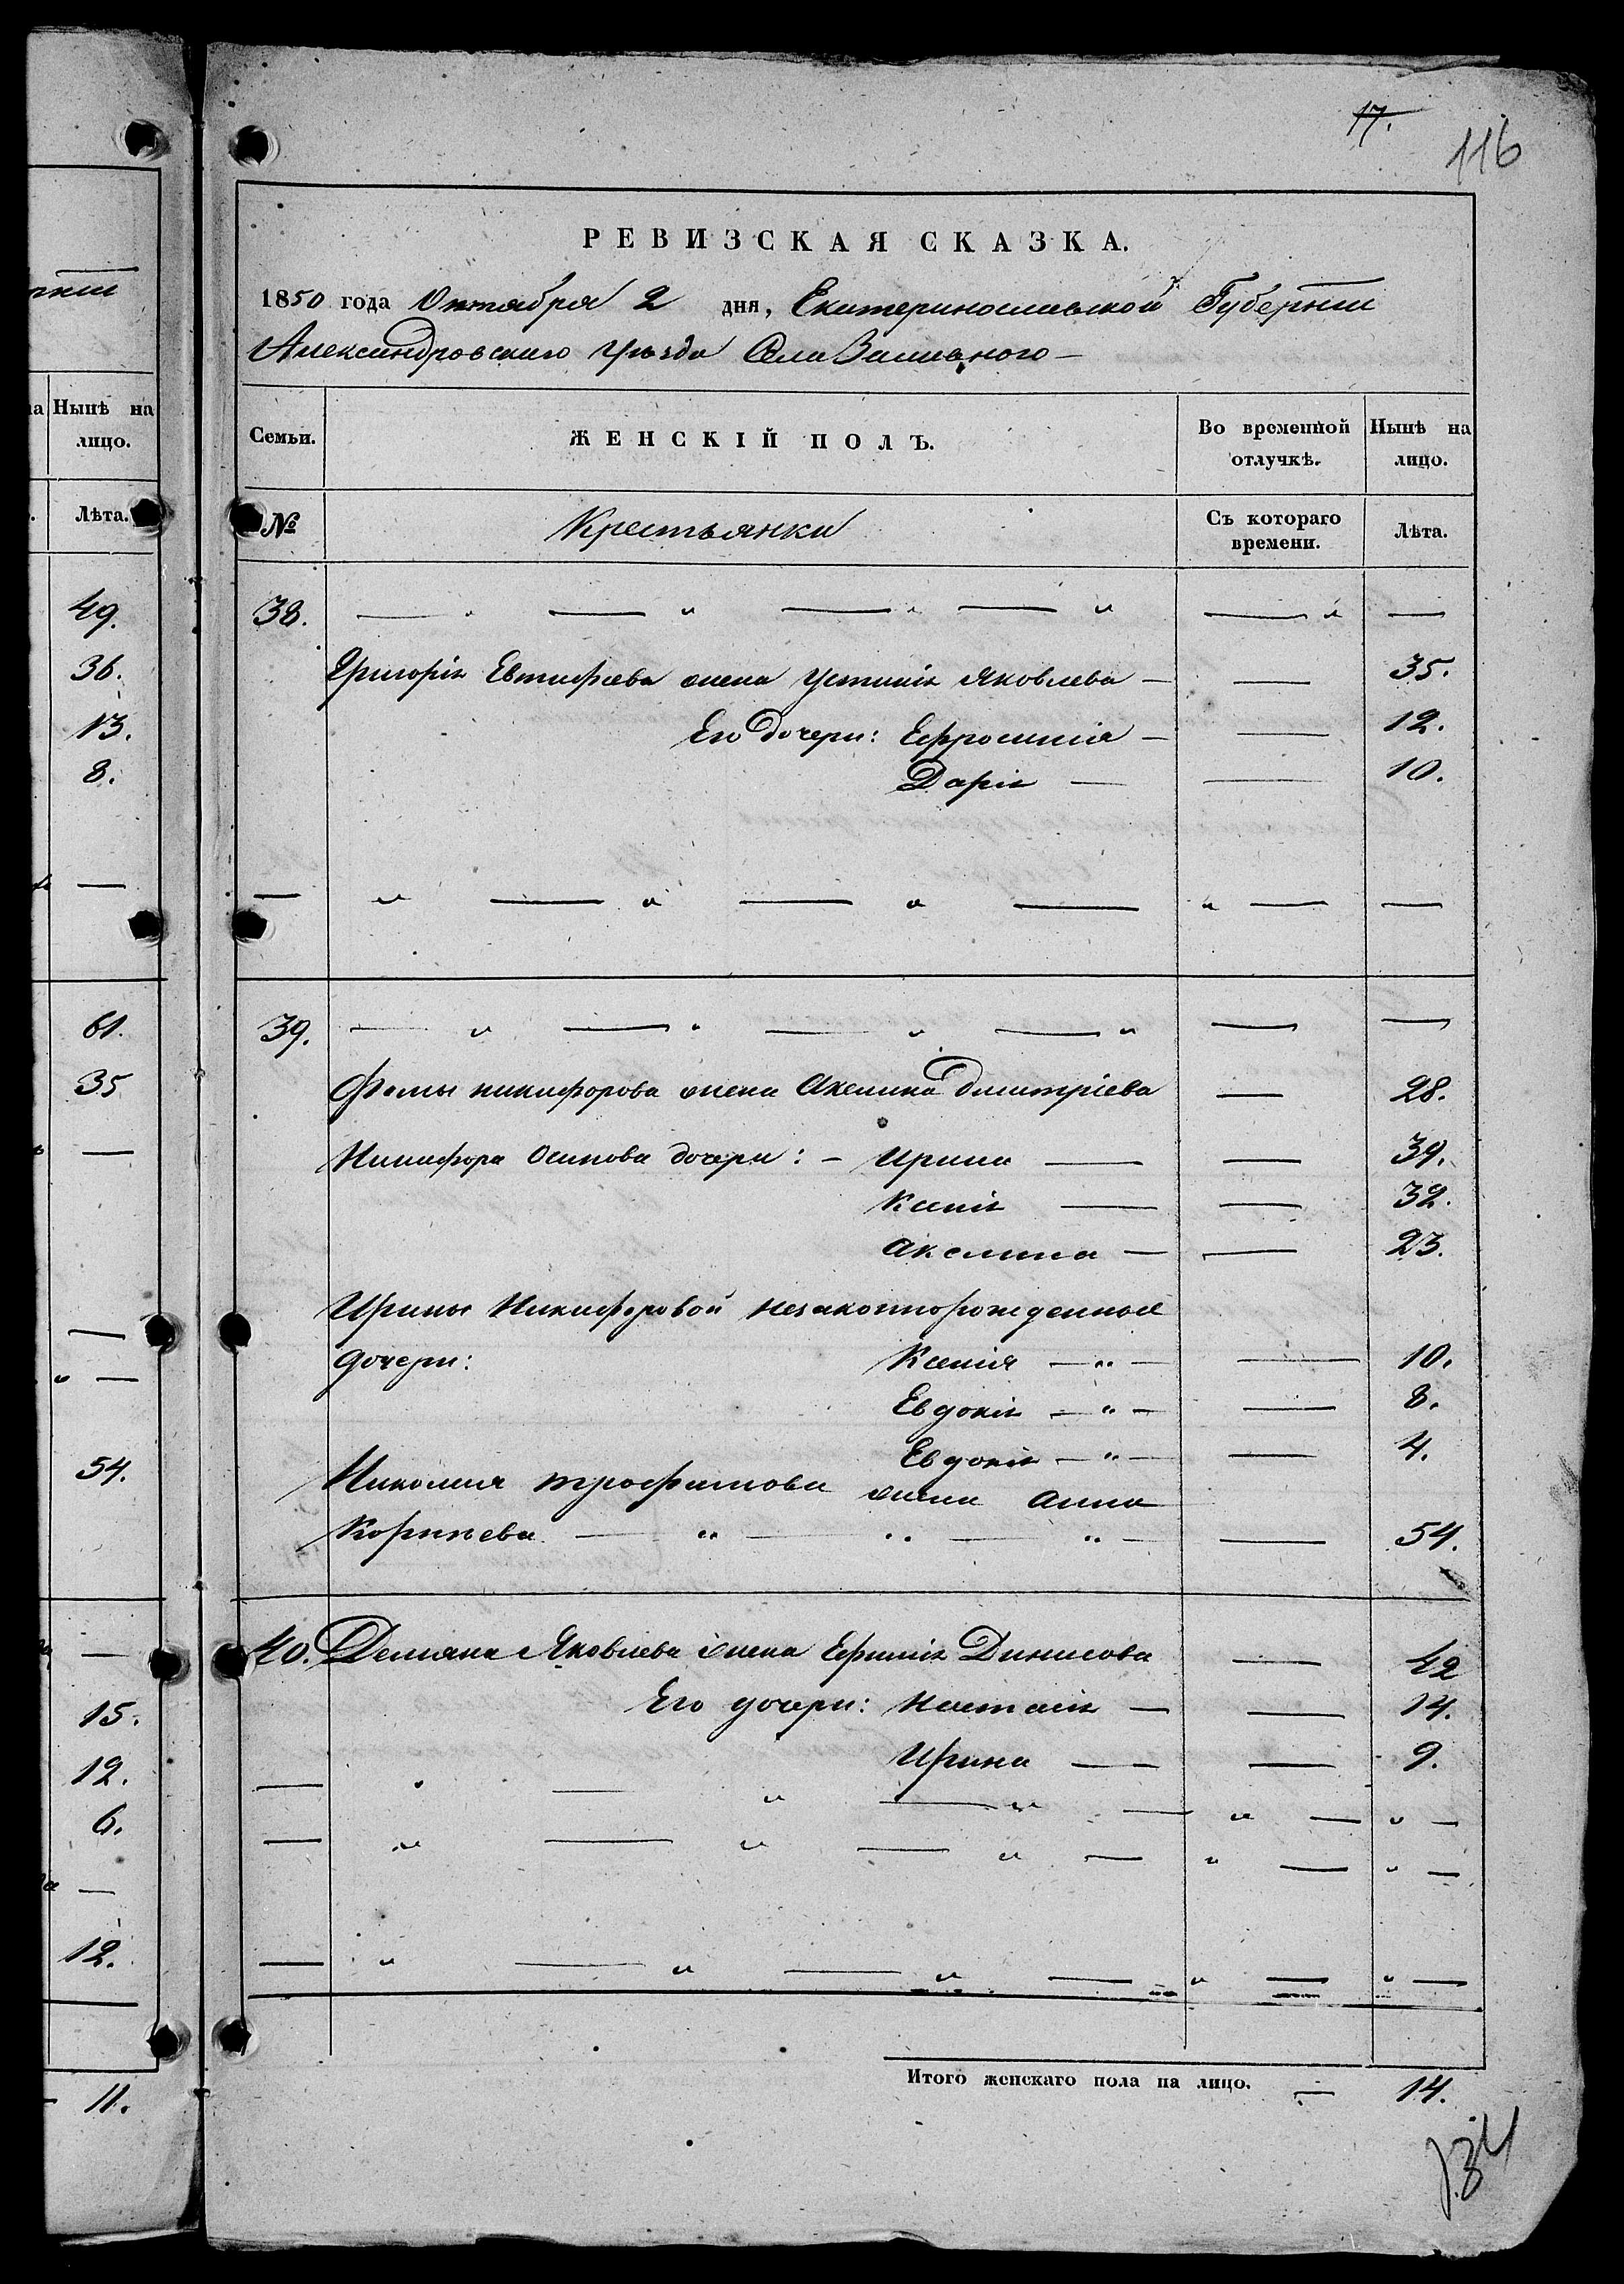 17.
116
РЕВИЗСКАЯ СКАЗКА.
1850 года Октября 2 дня, Екатеринославской Губернии
Александровскаго Уезда Села Заливного —
Семьи. ЖЕНСКІЙ ПОЛЪ. Во временной отлучкѣ. Нынѣ на лицо.
№ Крестьянки Съ котораго времени. Лѣта.
38. — " — " — " — " — " —
Григорія Евтифѣева жена Устинія Яковлева — — 35.
Его дочери: Ефросинія — — 12.
Дарія — — 10.
— " — " — " — " — —
39. — " — " — " — " — —
Фомы никифорова жена Акелина Дмитріева — 28.
Никифора Осипова дочери: — Ирина — — 39.
Ксенія — — 32.
Акелина — — 23.
Ирины Никифоровой незаконнорожденные
дочери: Ксенія — " — — 10.
Евдокія — " — — 8.
Евдокія — " — — 4.
Николая трофимова жена Анна
Корнѣева — " — " — " — — 54.
40. Демяна Яковлева жена Ефимія Динисова — 42
Его дочери: Настасія — — 14.
Ирина — — 9.
— " — " — " — " — " —
— " — " — " — " — " —
— " — " — " — " — " —
Итого женскаго пола на лицо. — 14.
нынѣ на
лицо.
Лѣта.
49.
36.
13.
8.
—
61.
35
—
—
" —
54.
—
15.
12.
6.
—
12.
11.